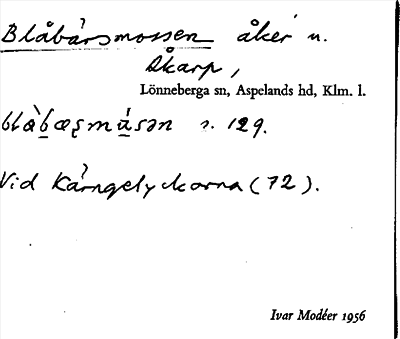 Blåbärsmossen åker n.
Åkarp,
Lönneberga sn, Aspelands hd, Klm. l.
129.
Vid Kärngelyckorna (72).
Ivar Modéer 1956